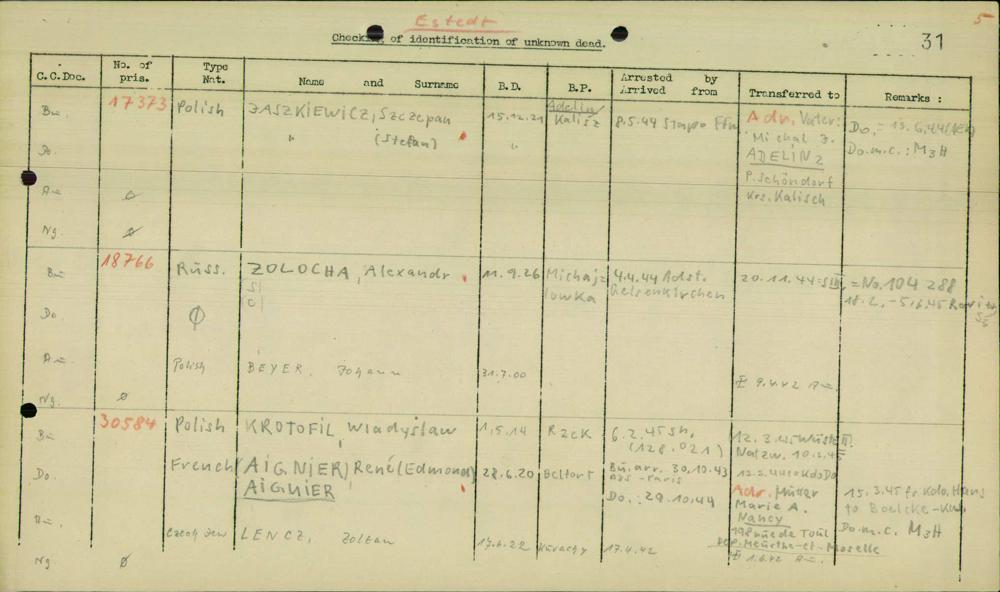 Estedt
5
Checking of identification of unknown dead.
31
C.C.Doc. No. of pris. Type Nat. Name and Surname B.D. B.P. Arrested by Arrived from Transferred to Remarks :
Bu. 17373 Polish JASZKIEWICZ, Szczepan 15.12.21 Adelin/ Kalisz 8.5.44 Stapo Ffm Adr. Vater:
" (Stefan) "
Michal J.
ADELIN
P. Schöndorf
Krs. Kalisch
Do.
Do.m.c.: M3H
Au. ø
Ng. ø
Bu. 18766 Russ. ZOLOCHA, Alexandr 11.9.26 Michaj= lowka 4.4.44 Adst. Gelsenkirchen 20.11.44 = SIII = No. 104 288
18.2.-5.6.45
Do. ø
Au. Polish BEYER, Johann 31.7.00
9.4.42 Au.
Ng. ø
Bu. 30584 Polish KROTOFIL, Wladyslaw 1.5.14 6.2.45 (128.021) 12.3.45 Wüste II.
Natzw. 10.2.45
Do. French (AIGNIER), René (Edmond) 28.6.20 Belfort Bu. arr. 30.10.43
AIGNIER
Do.: 29.10.44
Adr. Mutter
Marie A.
Nancy
198 rue de Toul
Dep. Meurthe-et-Moselle
15.3.45 fr. Kdo. Hans
to Boelcke-Kas.
Do.m.c. M3H
Au. Czech Jew LENCZ, Zoltan 17.4.42
1.6.42 Au.
Ng. ø